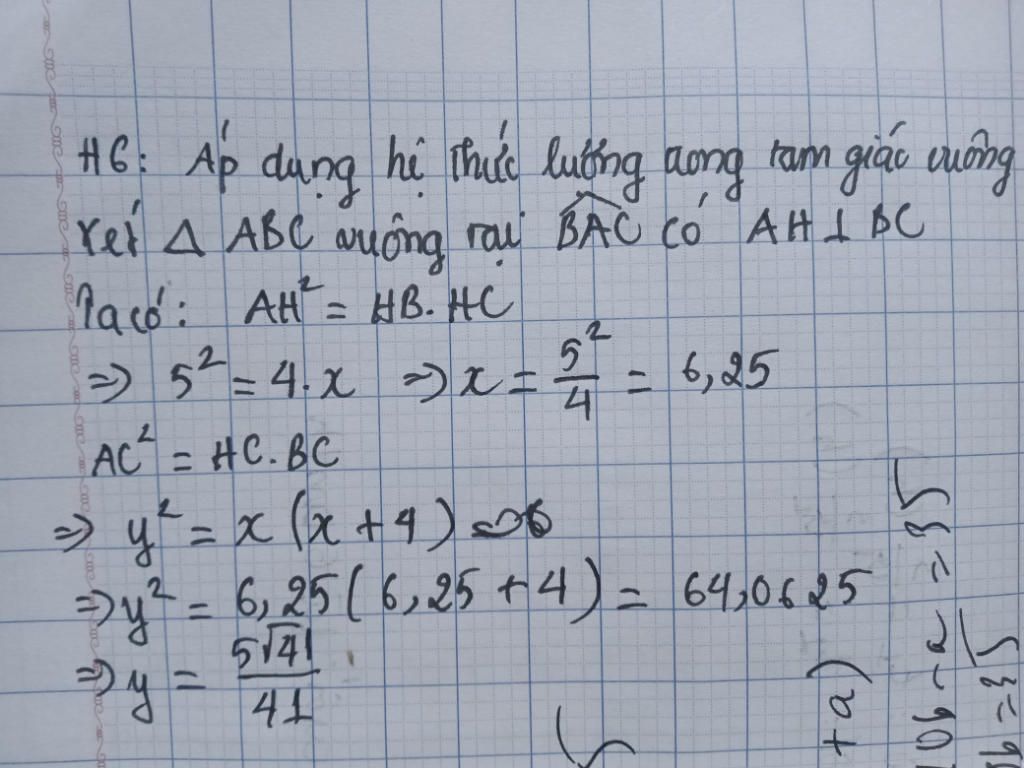 H6: Áp dụng hệ thức lượng trong tam giác vuông
xét Δ ABC vuông tại BAC có AH ⊥ BC
Ta có: AH² = HB. HC
=> 5² = 4. x => x = 5²/4 = 6,25
AC² = HC. BC
=> y² = x (x + 4)
=> y² = 6,25 ( 6,25 + 4 ) = 64,0625
=> y = 5√41/41